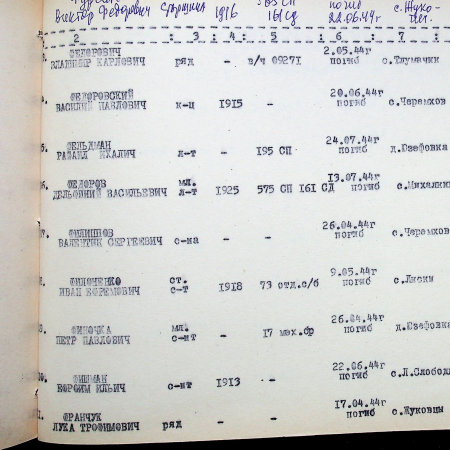 Виктор Федорович Старшина 1916 - 161 СД 22.06.44г с.Жуко-
: 2 : 3 : 4 : 5 : 6 : 7 :
ФЕДОРОВИЧ 2.05.44г
ВЛАДИМИР КАРЛОВИЧ ряд - в/ч 09271 погиб с.Тлумачки
ФЕДОРОВСКИЙ 20.06.44г
ВАСИЛИЙ ПАВЛОВИЧ к-ц 1915 - погиб с.Черемхов
ФЕЛЬДМАН 24.07.44г
РАФАИЛ ИХАЛИЧ л-т - 195 СП погиб д.Юзефовка
ФЕДОРОВ мл. 13.07.44г
ВАСИЛЬЕВИЧ л-т 1925 575 СП 161 СД погиб с.Михалки
ФИЛИППОВ 26.04.44г
ВАЛЕНТИН СЕРГЕЕВИЧ с-на - - погиб с.Черемхов
ФИЛОЧЕНКО ст. 9.05.44г
ИВАН ЕФРЕМОВИЧ с-т 1918 73 отд.с/б погиб с.Лиски
ФИНОЧКА мл. 26.04.44г
ПЕТР ПАВЛОВИЧ с-нт - 17 мех.бр погиб д.Юзефовка
ФИШМАН 22.06.44г
ЕФРОИМ ИЛЬИЧ с-нт 1913 - погиб с.Л.Слобод
ФРАНЧУК 17.04.44г
ЛУКА ТРОФИМОВИЧ ряд - - погиб с.Жуковцы